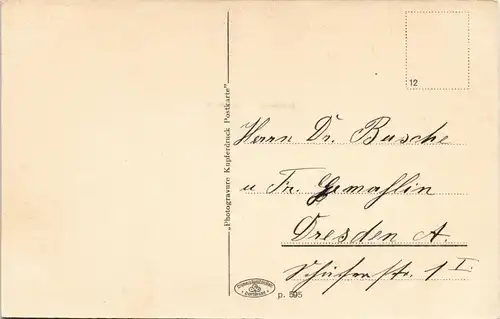 12
„Photogravure Kupferdruck Postkarte"
Herrn Dr. Busche
u Fr. Gemahlin
Dresden A.
Schäferstr. 1 I.
p. 595